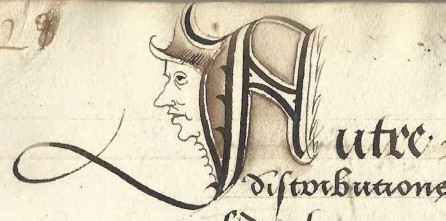 Autre
distributione